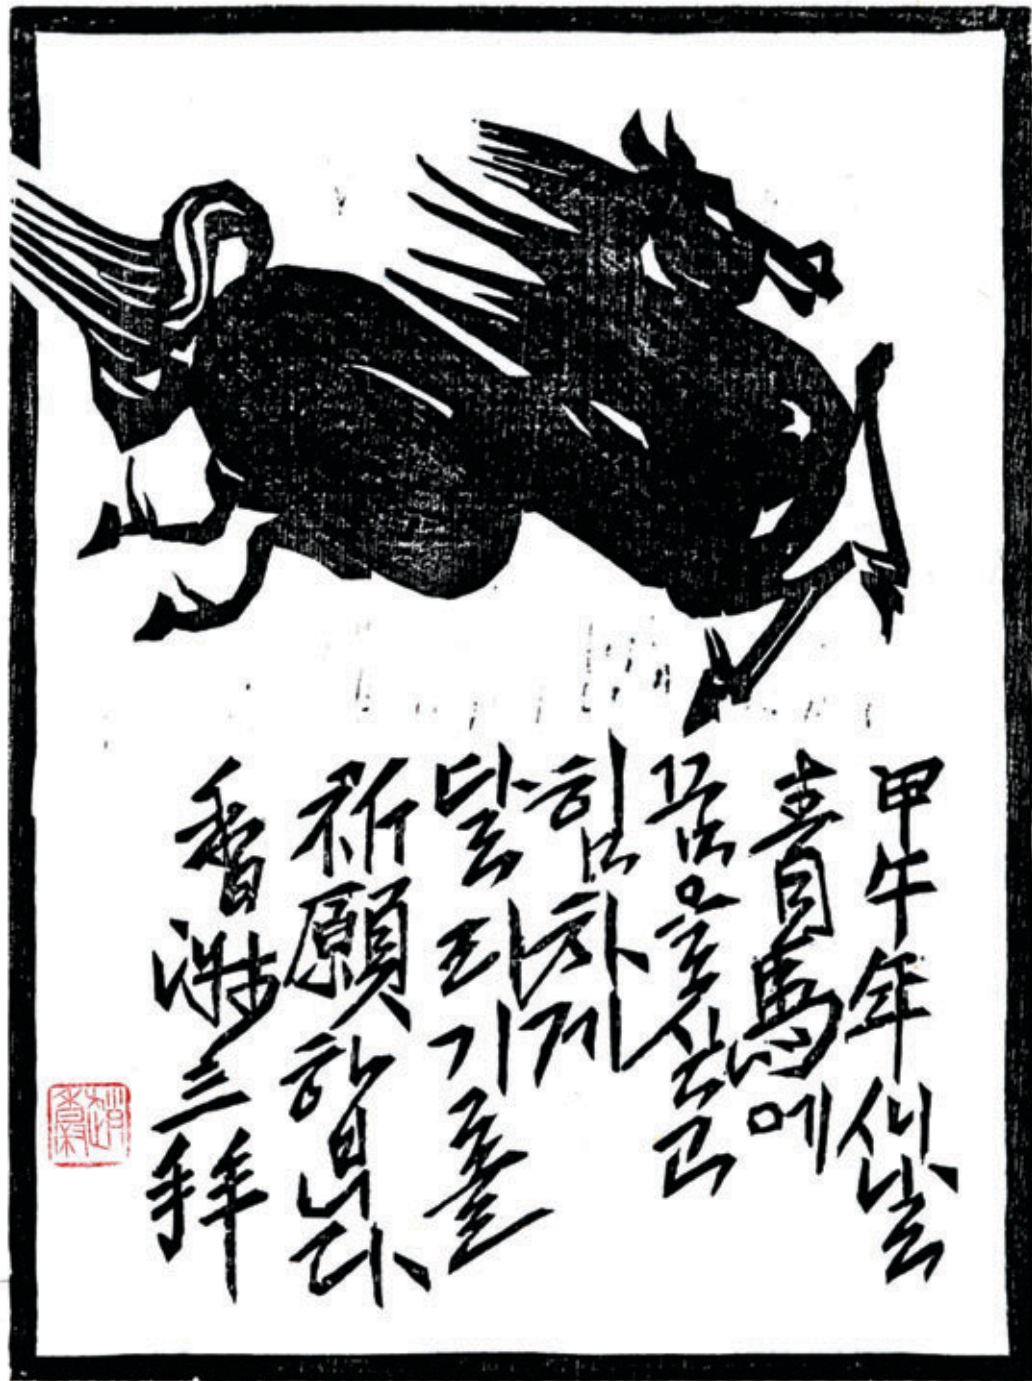 甲午年 새날
靑馬에
꿈을 싣고
힘차게
달리기를
祈願합니다
香 三拜